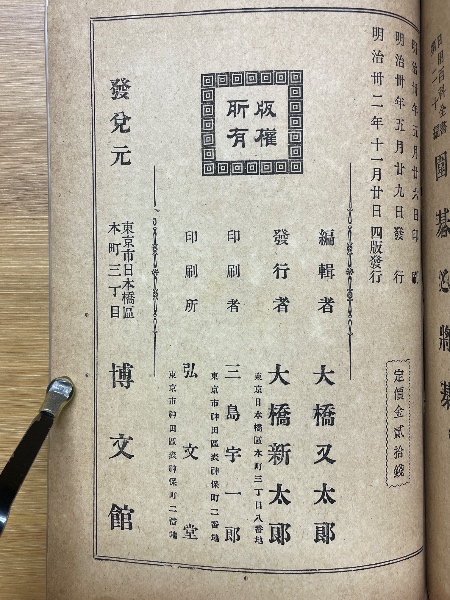 日用百科全書
第二十編
圍碁及將碁
明治卅年五月廿六日印刷
明治卅年五月廿九日發行
明治卅二年十一月廿日四版發行
定價金貳拾錢
版權所有
編輯者 大橋又太郎
發行者 大橋新太郎
東京日本橋區本町三丁目八番地
印刷者 三島宇一郎
東京市神田區裏神保町二番地
印刷所 弘文堂
東京市神田區裏神保町二番地
發兌元
東京市日本橋區
本町三丁目
博文館